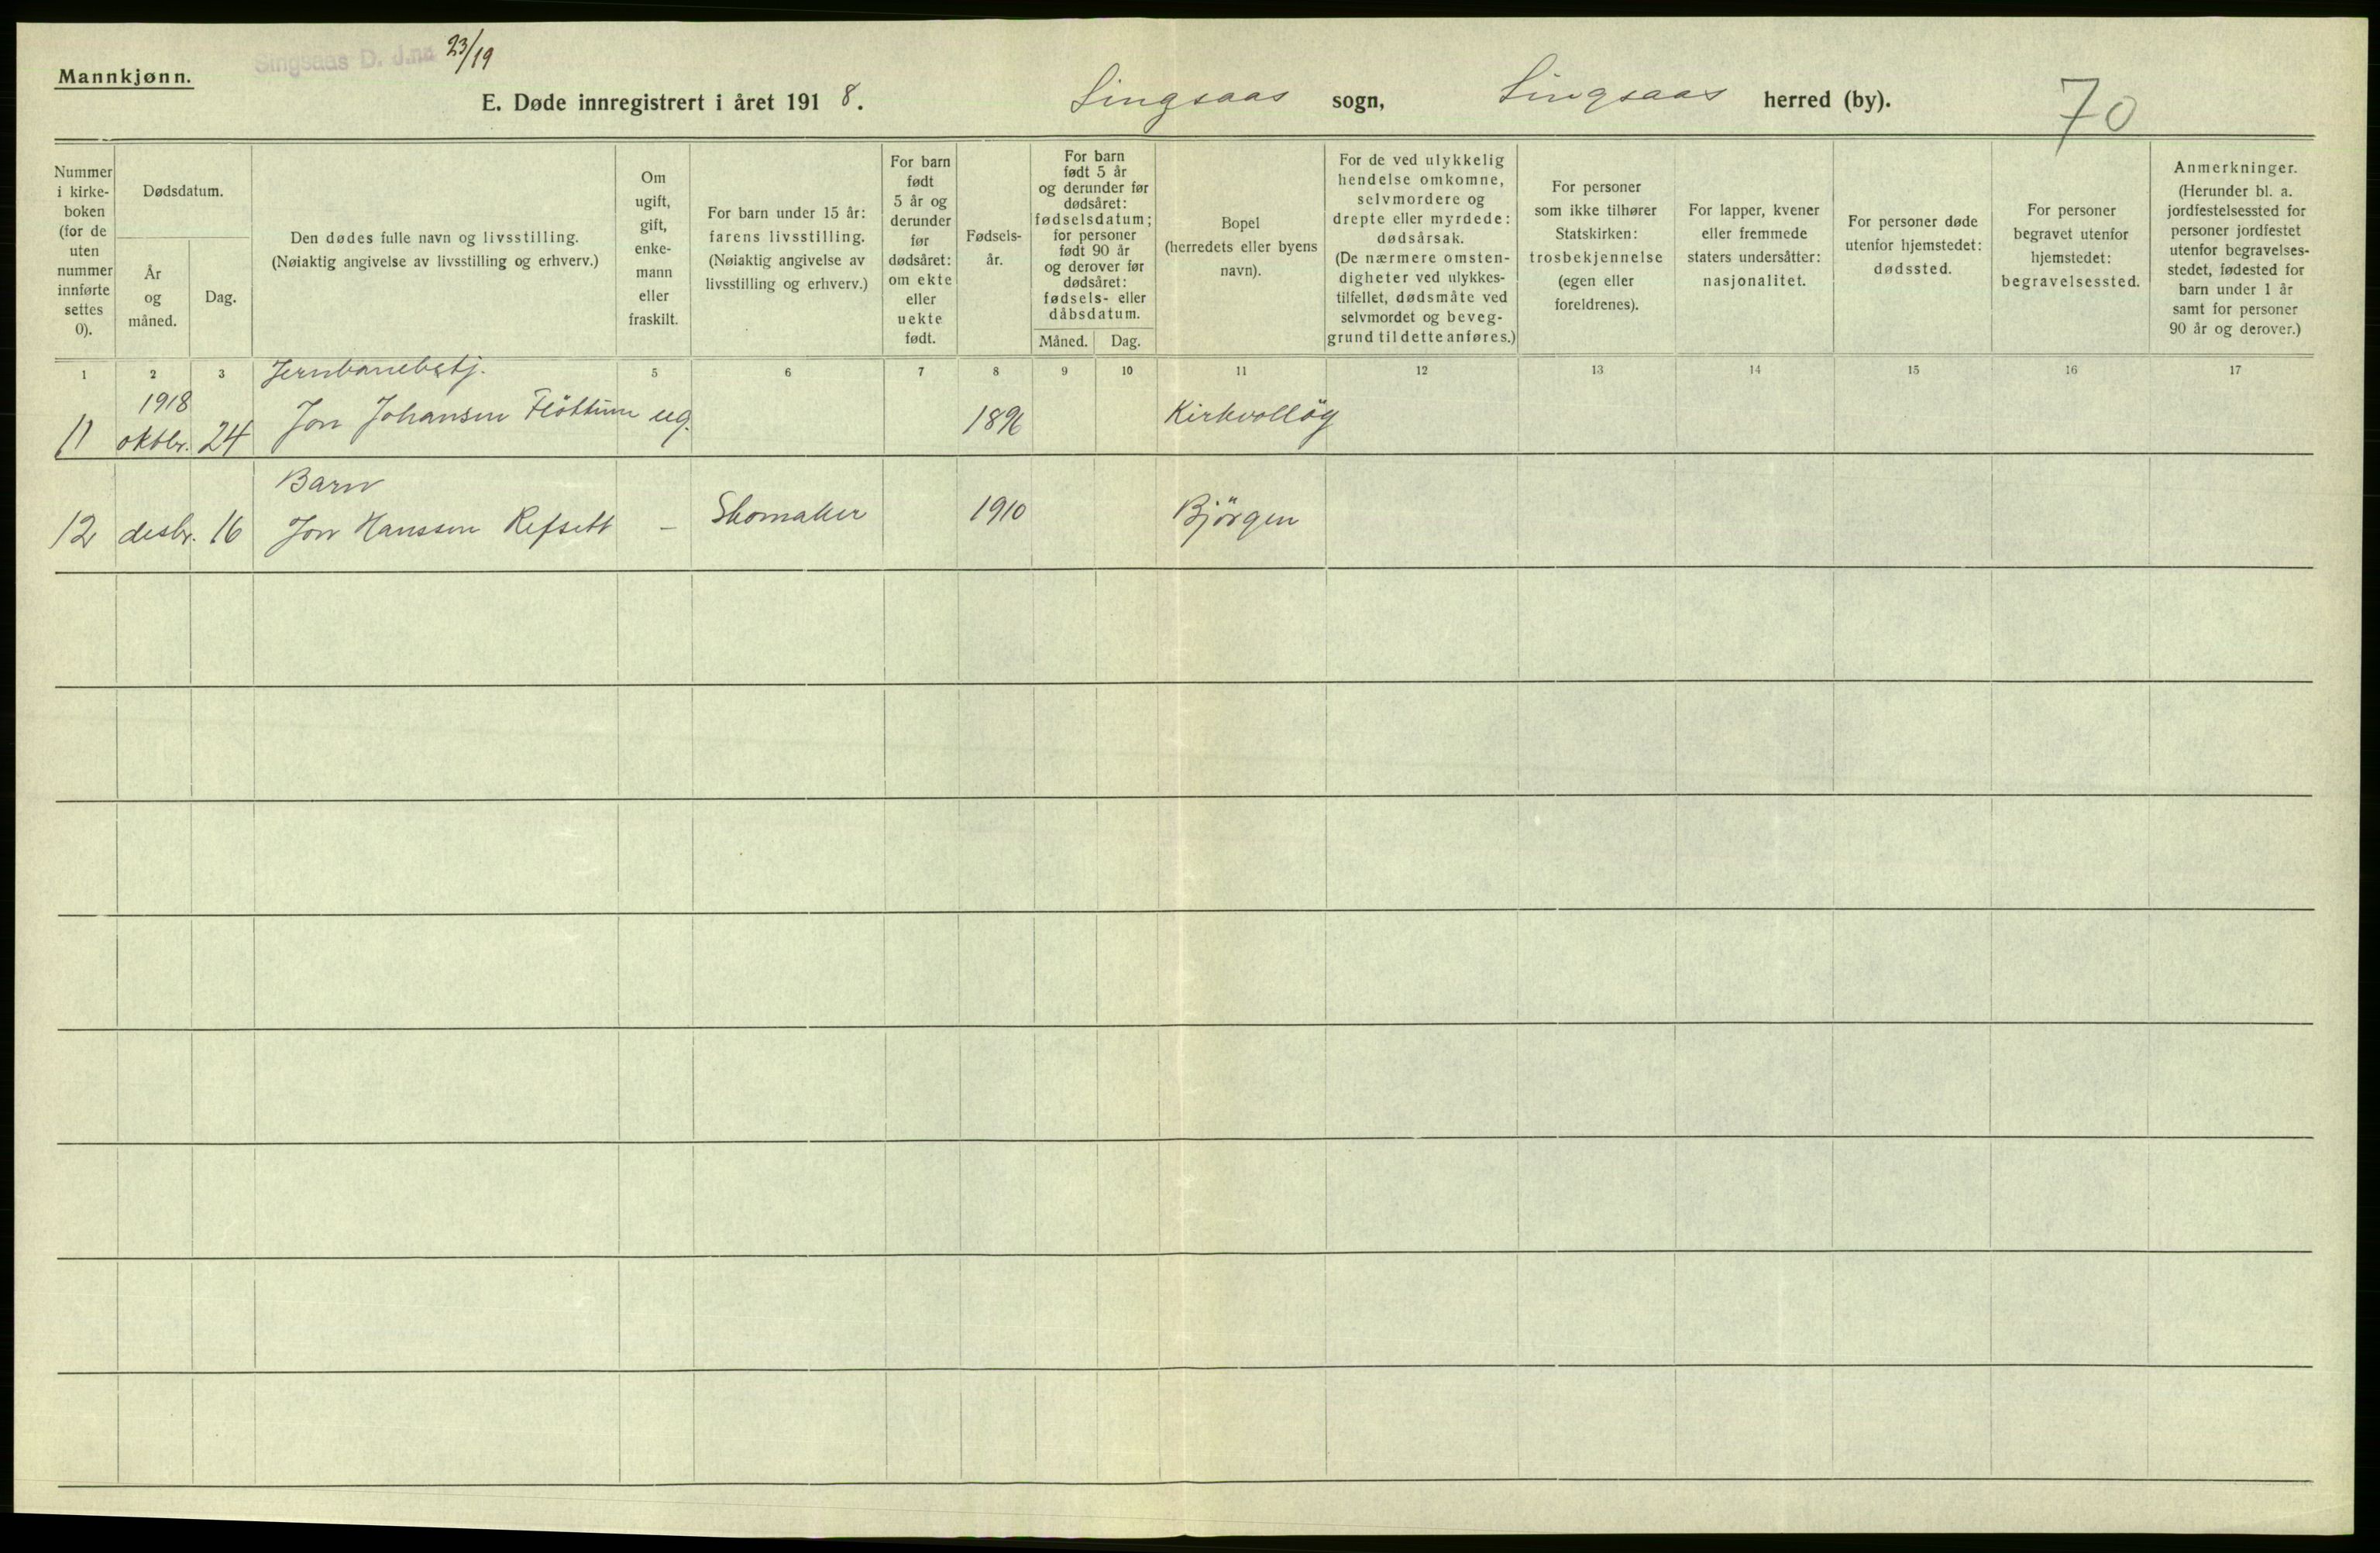 Mannkjønn.
Singsaas D. J.no 23/19
E. Døde innregistrert i året 1918.
Singsaas sogn, Singsaas herred (by).
70
Nummer
i kirke-
boken
(for de
uten
nummer
innførte
settes
0).
Dødsdatum.
År
og
måned.
Dag.
Den dødes fulle navn og livsstilling.
(Nøiaktig angivelse av livsstilling og erhverv.)
Om
ugift,
gift,
enke-
mann
eller
fraskilt.
For barn under 15 år:
farens livsstilling.
(Nøiaktig angivelse av
livsstilling og erhverv.)
For barn
født
5 år og
derunder
før
dødsåret:
om ekte
eller
uekte
født.
Fødsels-
år.
For barn
født 5 år
og derunder før
dødsåret:
fødselsdatum;
for personer
født 90 år
og derover før
dødsåret:
fødsels- eller
dåbsdatum.
Måned. Dag.
Bopel
(herredets eller byens
navn).
For de ved ulykkelig
hendelse omkomne,
selvmordere og
drepte eller myrdede:
dødsårsak.
(De nærmere omsten-
digheter ved ulykkes-
tilfellet, dødsmåte ved
selvmordet og beveg-
grund til dette anføres.)
For personer
som ikke tilhører
Statskirken:
trosbekjennelse
(egen eller
foreldrenes).
For lapper, kvener
eller fremmede
staters undersåtter:
nasjonalitet.
For personer døde
utenfor hjemstedet:
dødssted.
For personer
begravet utenfor
hjemstedet:
begravelsessted.
Anmerkninger.
(Herunder bl. a.
jordfestelsessted for
personer jordfestet
utenfor begravelses-
stedet, fødested for
barn under 1 år
samt for personer
90 år og derover.)
1 2 3 5 6 7 8 9 10 11 12 13 14 15 16 17
Jernbanebetj.
1918
11 oktbr. 24 Jon Johansen Flöttum ug. 1896 Kirkvolløy
Barn
12 desbr. 16 Jon Hanssen Refsett - Skomaker 1910 Björgen